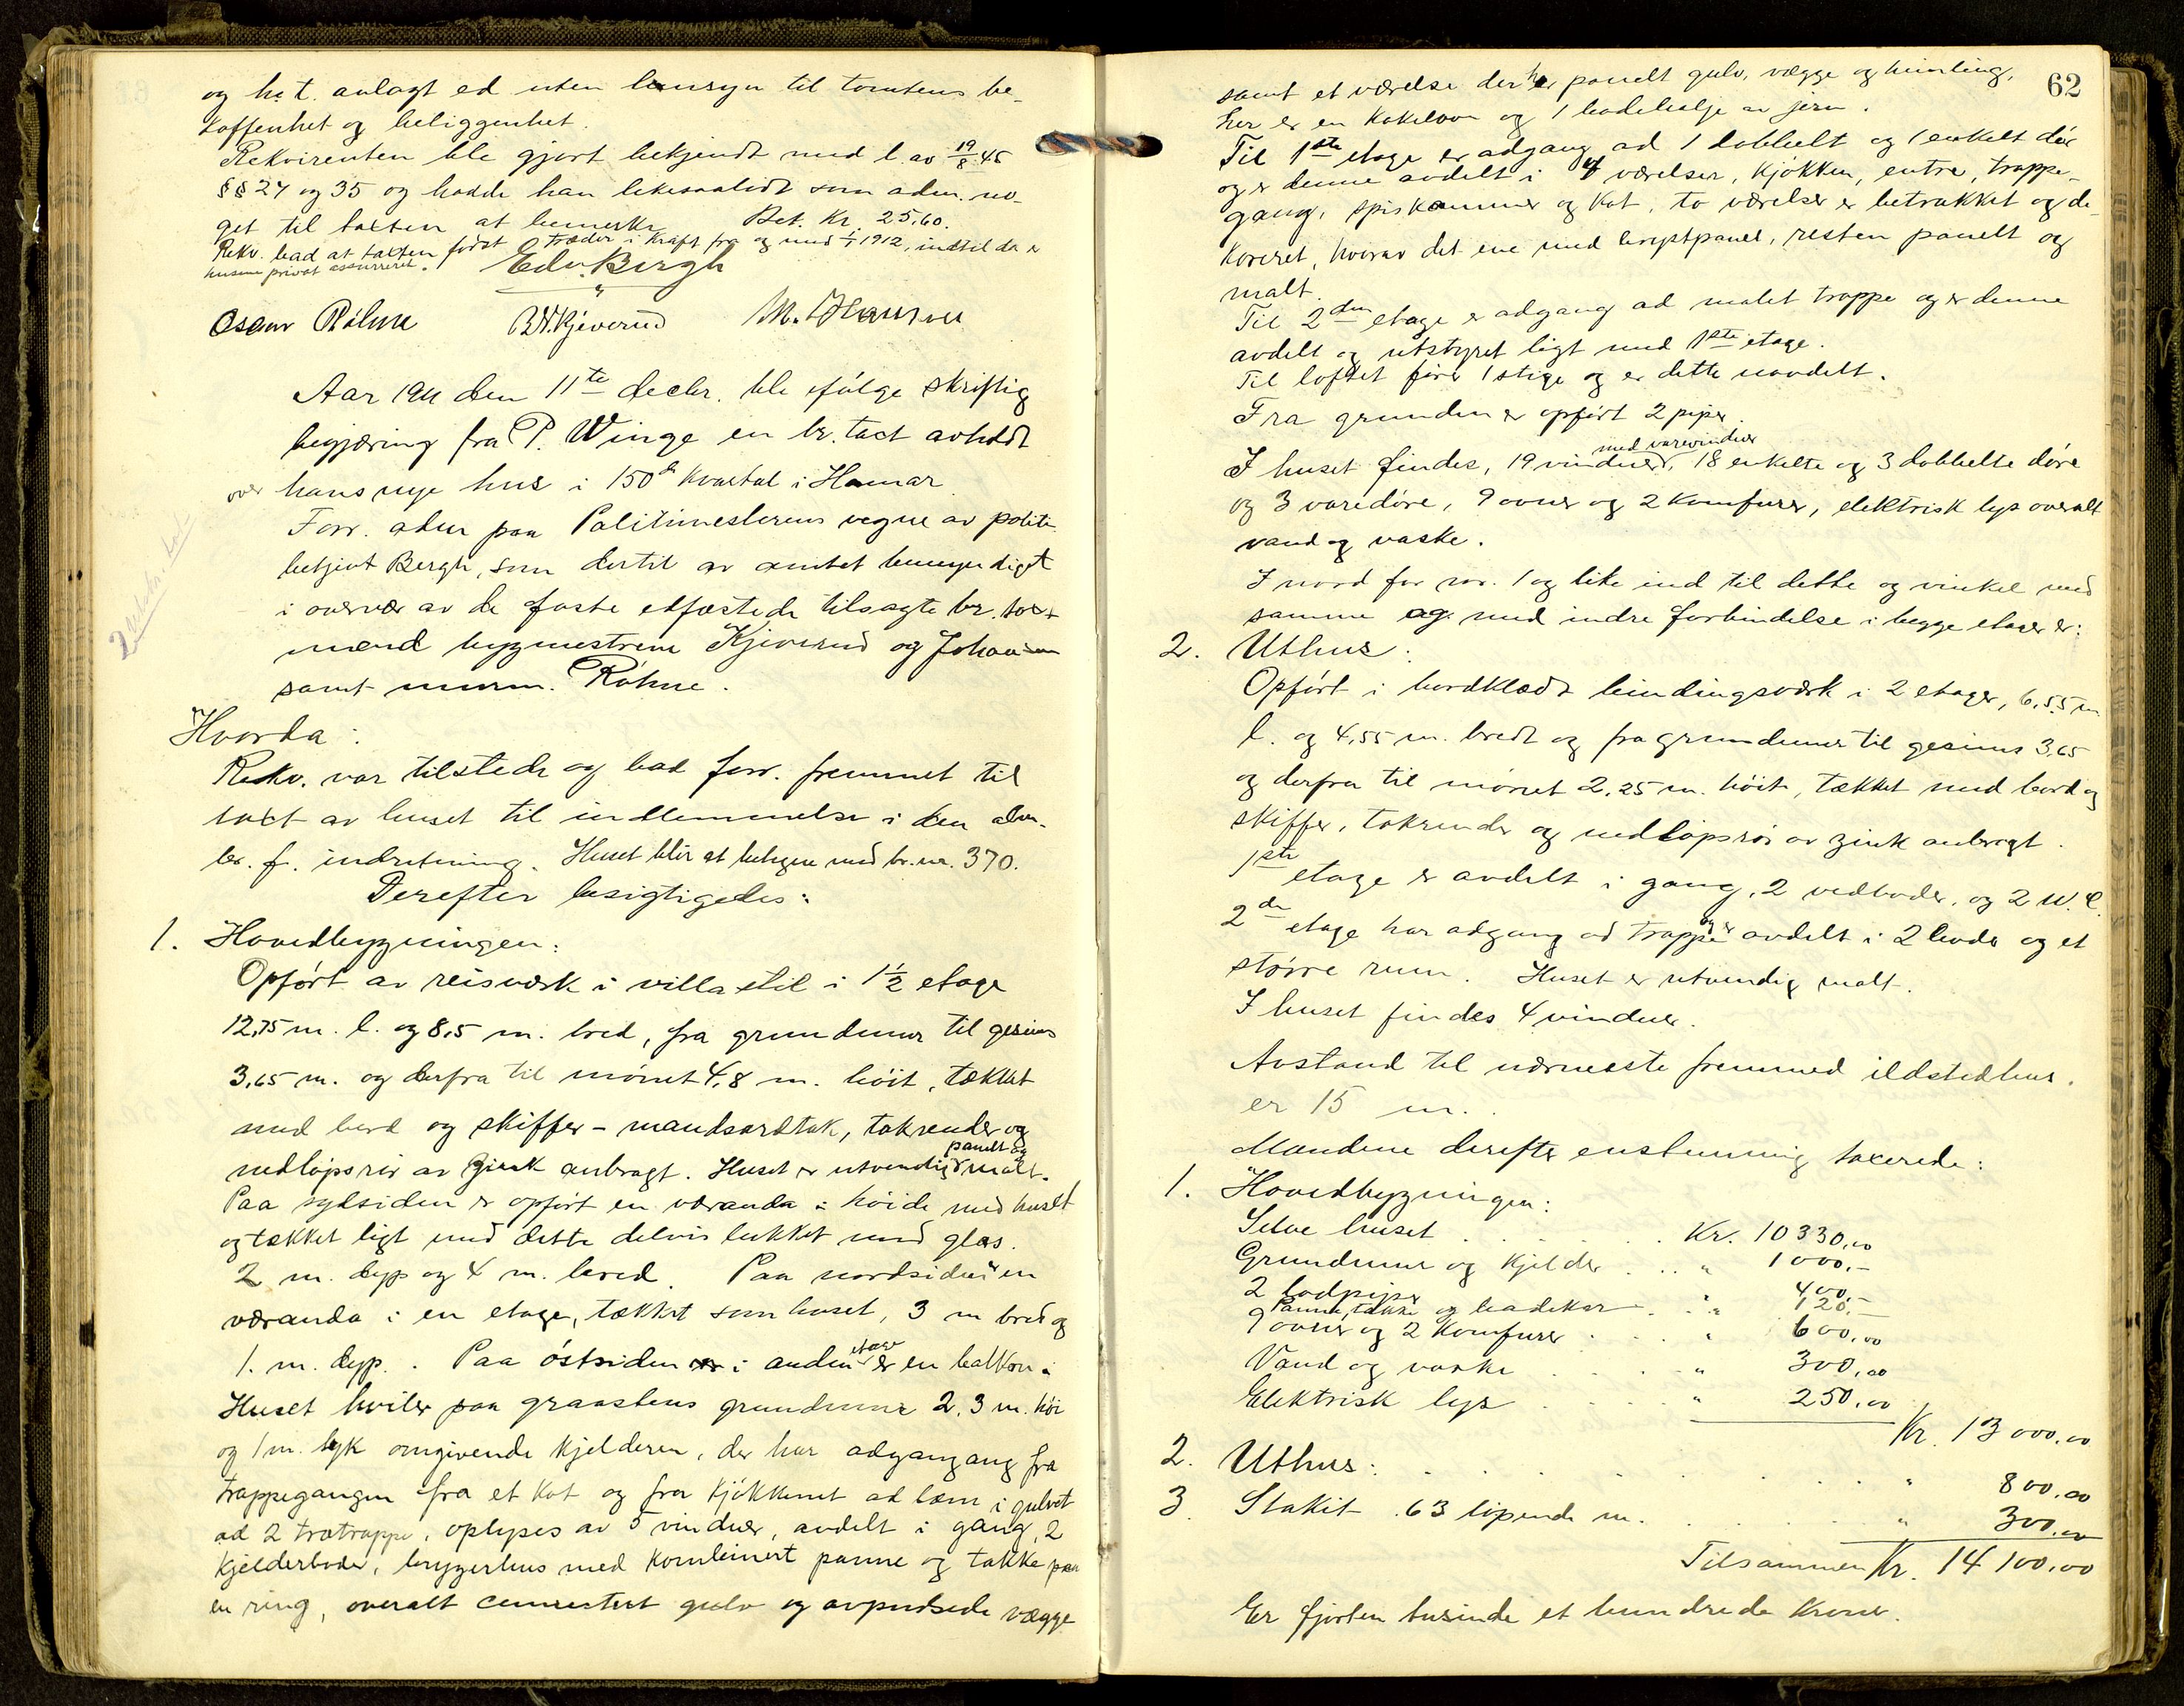 og hat anlagt ed uten hensyn til tomtens be-
skaffenhet og beliggenhet.
Rekvirenten ble gjort bekjendt med l. av 19/8 45
§§ 24 og 35 og hadde han likesaalidt som adm. no-
get til taxten at bemerke. Bet. Kr. 25,60.
Rekv. bad at taxten først træder i kraft fra og med 1/1 1912, indtil da er
husene privat assurreret.
Edv. Bergh
Oscar Röhne B. Kjeverud M. Hansen
Aar 1911 den 11te decbr. ble ifølge skriftlig
begjæring fra P. Winge en br. taxt avholdt
over hans nye hus i 150de kvartal i Hamar
Forr. adm paa Politimesterens vegne av politi-
betjent Bergh, som dertil av amtet bemyndiget
i overvær av de faste edfæstede tilsagte br. taxt
mænd bygmestrene Kjeverud og Johansen
samt murm. Röhne.
Hvorda:
Rekv. var tilstede og bad forr. fremmet til
taxt av huset til indlemmelse i den alm.
br. f. indretning. Huset blir at betegne med br. nr. 370.
Derefter besigtigedes:
1. Hovedbygningen:
Opført av reisverk i villastil i 1½ etage
12,75 m. l. og 8,5 m. bred, fra grundmur til gesims
3,65 m. og derfra til mønet 4,8 m. høit, tækket
med bord og skiffer - mandsardtak, takrender og
nedløpsrør av zink anbragt. Huset er utvendig panelt og malt.
Paa sydsiden er opført en veranda i høide med huset
og tækket ligt med dette delvis lukket med glas.
2 m. dyp og 4 m. bred. Paa nordsiden en
veranda i en etage, tækket som huset, 3 m bred og
1. m. dyp. Paa østsiden i anden etage er en balkon.
Huset hviler paa graastens grundmur 2,3 m. høi
og 1 m. tyk omgivende kjelderen, der har adgangang fra
trappegangen fra et kot og fra kjøkkenet ad lem i gulvet
ad 2 trætrappe, oplyses av 5 vinduer, avdelt i gang, 2
kjelderboder, bryggerhus med kombinert panne og takke paa
en ring, overalt cementert gulv og avpudsede vægge
62
samt et værelse der har panelt gulv, vægge og himling,
her er en kakelovn og 1 badebalje av jern.
Til 1ste etage er adgang ad 1 dobbelt og 1 enkelt dør
og er denne avdelt i 4 værelser, kjøkken, entre, trappe-
gang, spiskammer og kot, to værelser er betrukket og de-
koreret, hvorav det ene med brystpanel, resten panelt og
malt.
Til 2den etage er adgang ad malet trappe og er denne
avdelt og utstyret ligt med 1ste etage.
Til loftet fører 1 stige og er dette uavdelt.
Fra grunden er opført 2 piper.
I huset findes, 19 vinduer med varevinduer, 18 enkelte og 3 dobbelte døre
og 3 varedøre, 9 ovner og 2 komfurer, elektrisk lys overalt
vand og vaske.
I nord for nr. 1 og like ind til dette og vinkel med
samme og med indre forbindelse i begge etager er:
2. Uthus:
Opført i bordklædt bindingsverk i 2 etager, 6,55 m
l. og 4,55 m. bredt og fra grundmur til gesims 3,65
og derfra til mønet 2,25 m. høit, tækket med bord og
skiffer, takrender og nedløpsrør av zink anbragt.
1ste etage er avdelt i gang, 2 vedboder, og 2 W.C.
2de etage har adgang ad trappe og er avdelt i 2 boder og et
større rum. Huset er utvendig malt.
I huset findes 4 vinduer.
Avstand til nærmeste fremmed ildstedhus
er 15 m.
Mændene derefter enstemmig taxerede:
1. Hovedbygningen:
Selve huset . . . . Kr. 10330,00
Grundmur og Kjelder . . . " 1000,-
2 lodpiper 400,-
Panne, takke og badekar . . " 120,-
9 ovner og 2 Komfurer . . . " 600,00
Vand og vaske . . . " 300,00
Elektrisk lys . . . . " 250,00
Kr. 13000,00
2. Uthus: . . . . " 800,00
3. Stakit 63 løpende m. . . . . " 300,00
Tilsammen Kr. 14100,00
Er fjorten tusinde et hundrede Kroner.